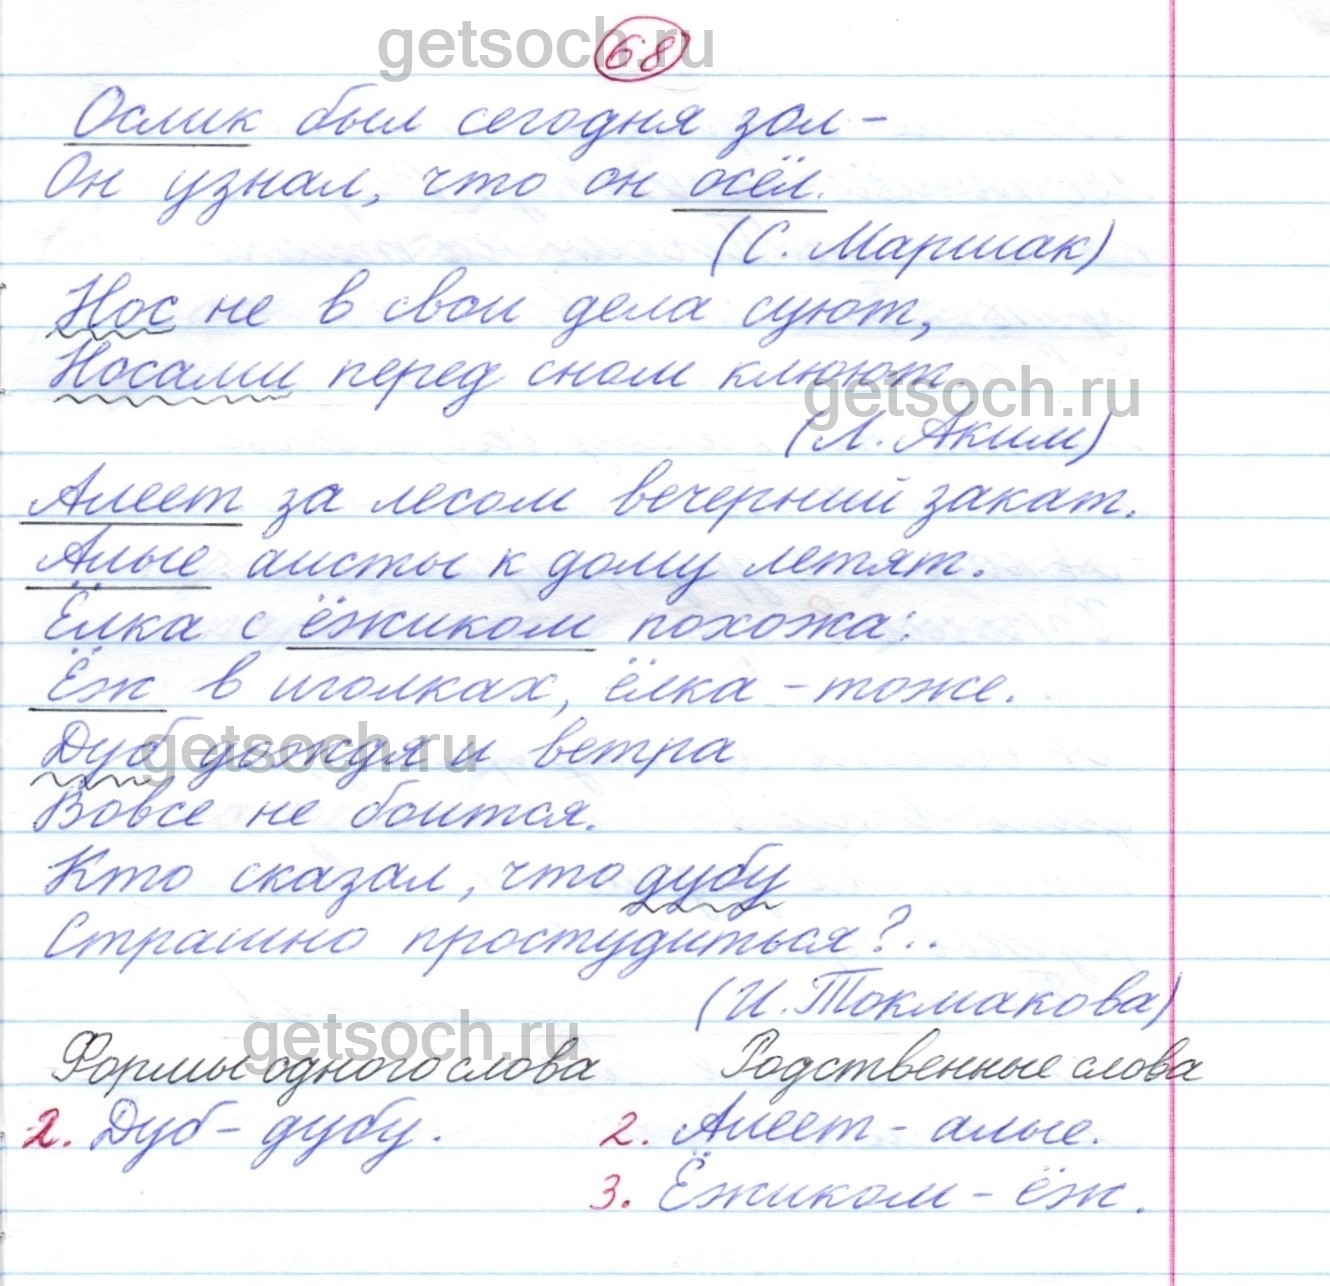 68
Ослик был сегодня зол –
Он узнал, что он осёл.
(С. Маршак)
Нос не в свои дела суют,
Носами перед сном клюют.
(Л. Аким)
Алеет за лесом вечерний закат.
Алые аисты к дому летят.
Ёлка с ёжиком похожа:
Ёж в иголках, ёлка – тоже.
Дуб дождя и ветра
Вовсе не боится.
Кто сказал, что дубу
Страшно простудиться?..
(И. Токмакова)
Формы одного слова Родственные слова
2. Дуб – дубу. 2. Алеет – алые.
3. Ёжиком – ёж.
getsoch.ru
getsoch.ru
getsoch.ru
getsoch.ru